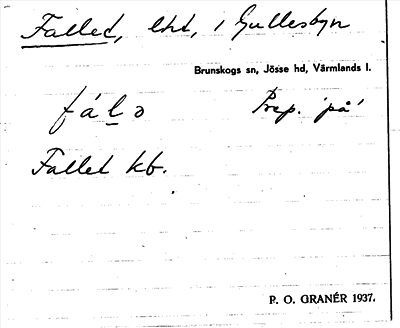 Fallet, lht, i Gullesbyn
Brunskogs sn, Jösse hd, Värmlands l.
fálə Prep. 'på'
Fallet kb.
P. O. GRANÉR 1937.